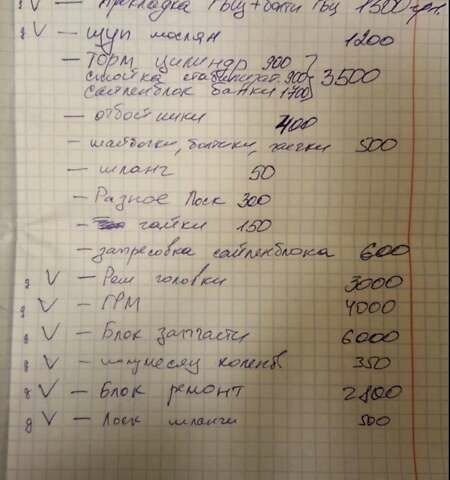 g V — Прокладка ГБЦ + болты ГБЦ 1500 грн.
g V — щуп маслян 1200
— Торм. цилиндр 900
стойка стабилизат. 900 } 3500
сайленблок банки 1700
— отбойники 400
— шайбочки, болтики, гаечки 500
— шланг 50
— Разное Лоск 300
— гайки 150
— запресовка сайленблока 600
g V — Рем головки 3000
g V — ГРМ 4000
g V — Блок запчасти 6000
g V — полумесяц коленв 350
g V — Блок ремонт 2800
g V — Лоск шланги 500